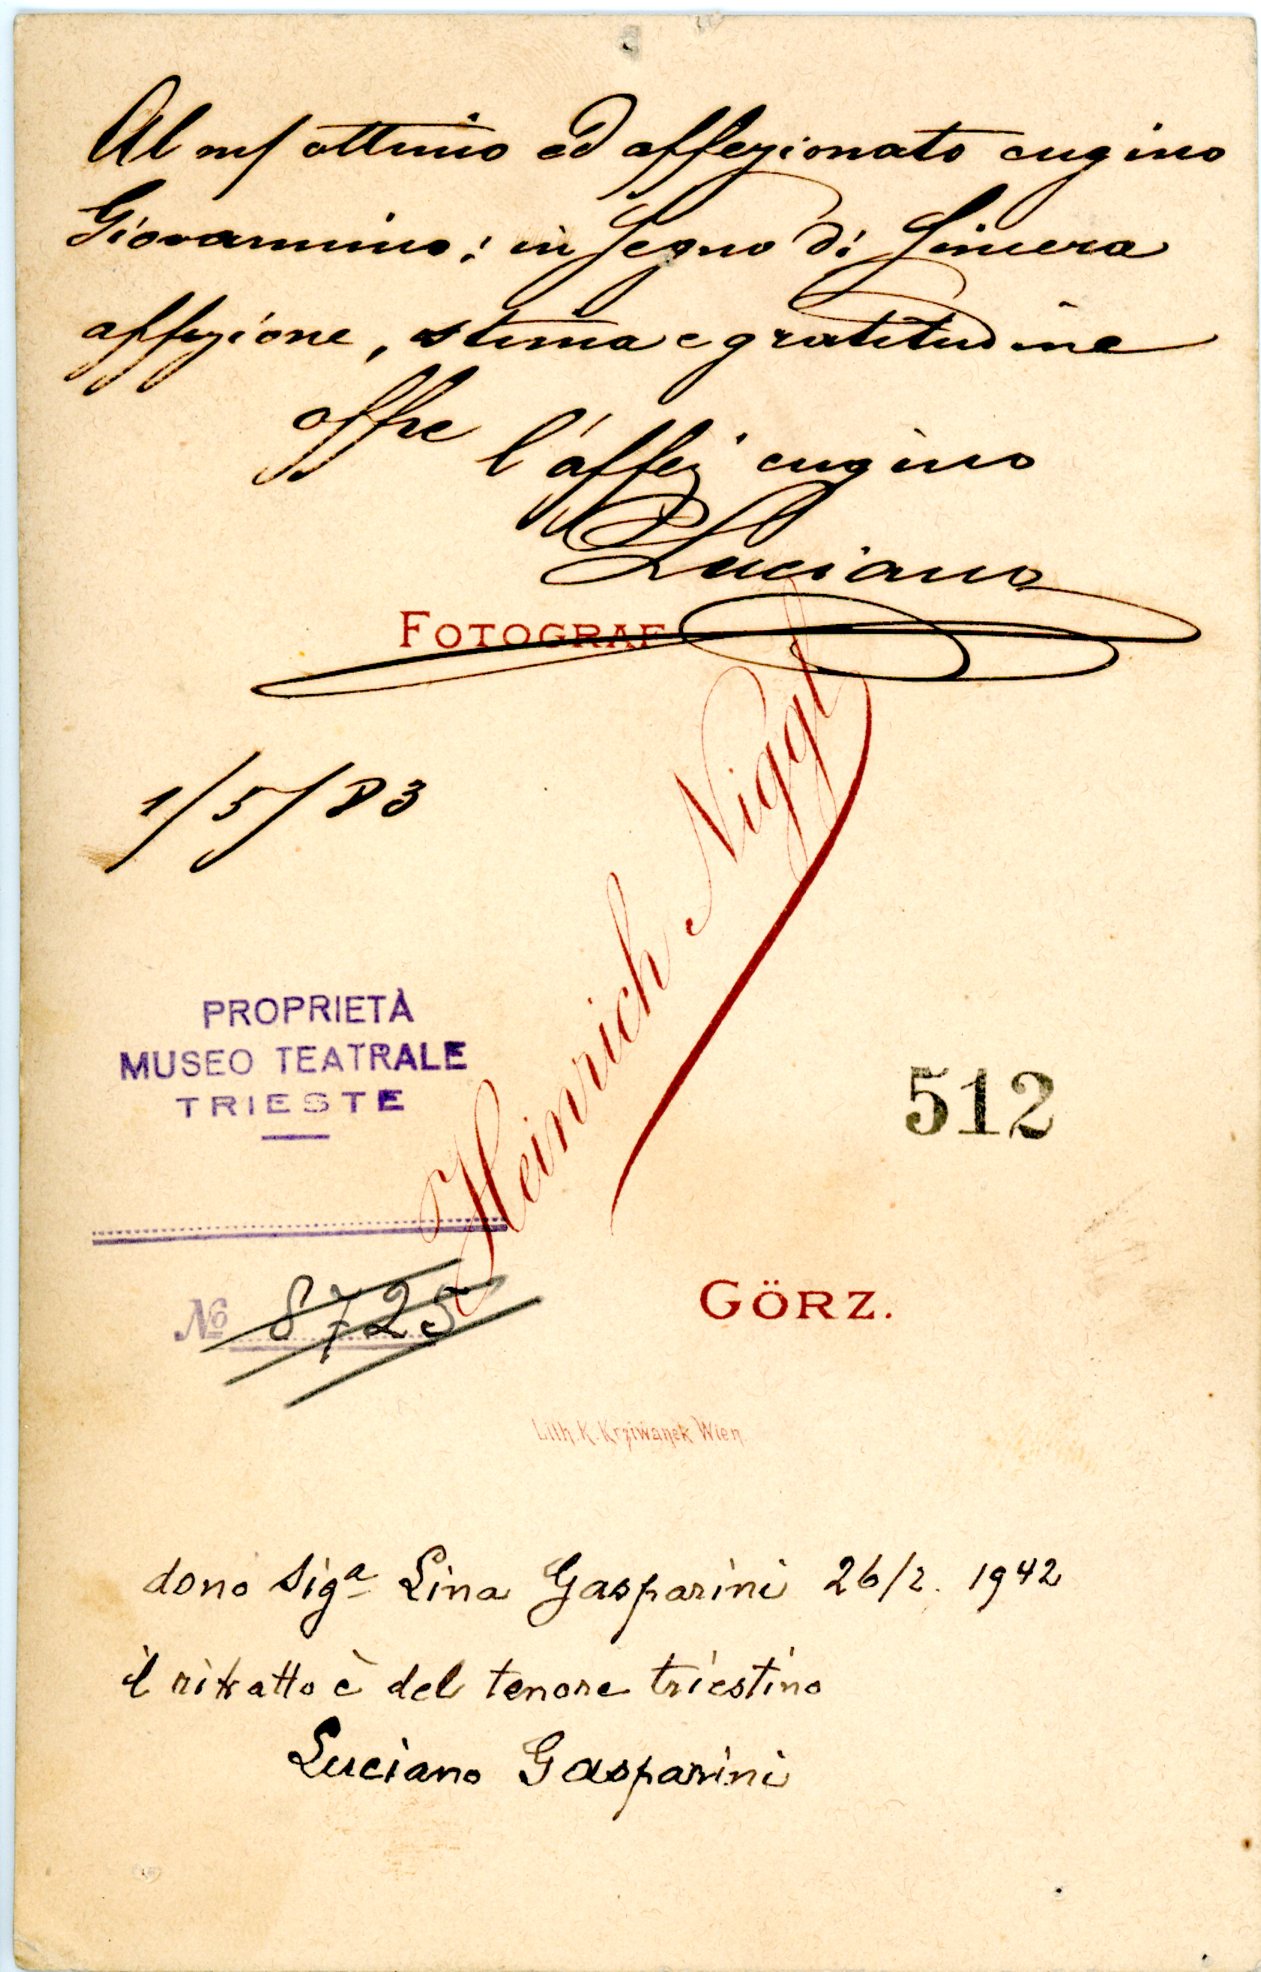 Al mio ottimo ed affezionato cugino
Giovannino; in segno di sincera
affezione, stima e gratitudine
offre l'affez. cugino
Luciano
FOTOGRAF
1/5/83
Heinrich Niggl
PROPRIETÀ
MUSEO TEATRALE
TRIESTE
512
№ 8725
GÖRZ.
Lith. K. Krziwanek Wien.
dono Sigª Lina Gasparini 26/2. 1942
il ritratto è del tenore triestino
Luciano Gasparini